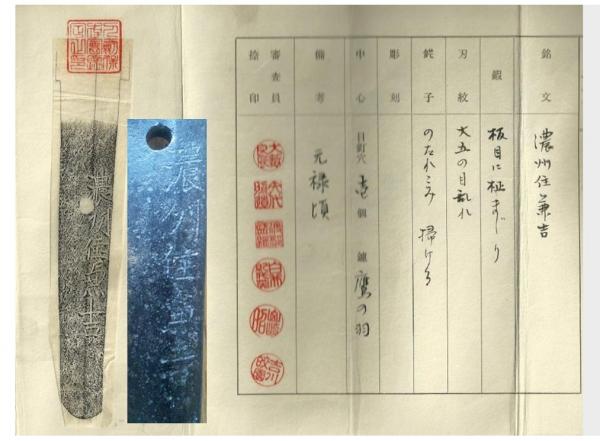 銘文 濃州住兼吉
鍜 板目に柾まじり
刃紋 大五の目乱れ
鋩子 のたれこみ 掃ける
彫刻
中心 目釘穴 壱個 鑢 鷹の羽
備考 元禄頃
審査員捺印
濃州住兼吉
濃州住兼吉